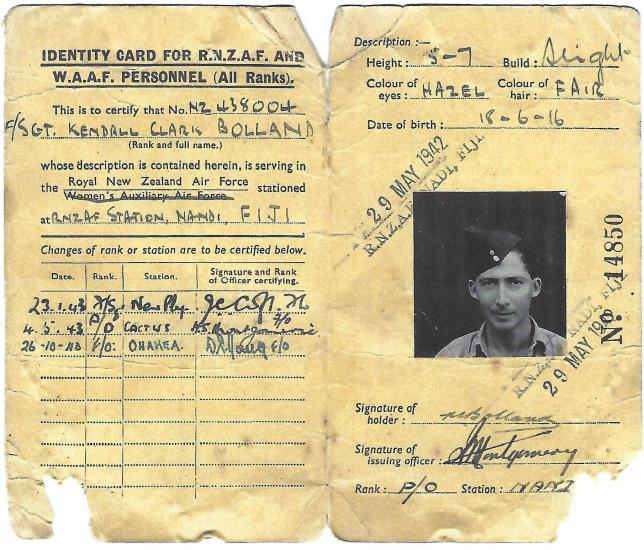 IDENTITY CARD FOR R.N.Z.A.F. AND
W.A.A.F. PERSONNEL (All Ranks).
This is to certify that No. NZ 438004
F/SGT. KENDALL CLARK BOLLAND
(Rank and full name.)
whose description is contained herein, is serving in
the Royal New Zealand Air Force
Women's Auxiliary Air Force stationed
at RNZAF STATION, NANDI, FIJI
Changes of rank or station are to be certified below.
Date. Rank. Station. Signature and Rank of Officer certifying.
23.1.43 F/S New Ply
4. 5. 43 P/O CACTUS Montgomerie
26-10-43 F/O. OHAKEA. F/O
Description :—
Height : 5-7 Build : Slight
Colour of eyes : HAZEL Colour of hair : FAIR
Date of birth : 18-6-16
29 MAY 1942
R.N.Z.A.F. NADI, FIJI.
No. 14850
R.N.Z. NADI, FIJI
29 MAY 1942
Signature of holder : Bolland
Signature of issuing officer : Montgomery
Rank : P/O Station : NANDI